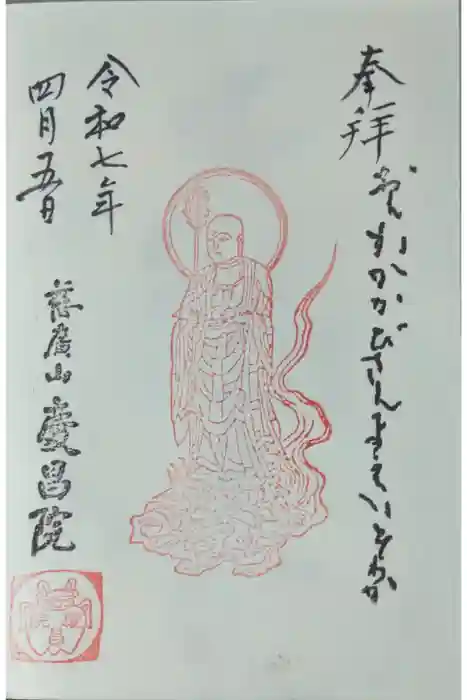 奉拝
おん かかかびさんまえい そわか
令和七年
四月五日
慈廣山 慶昌院